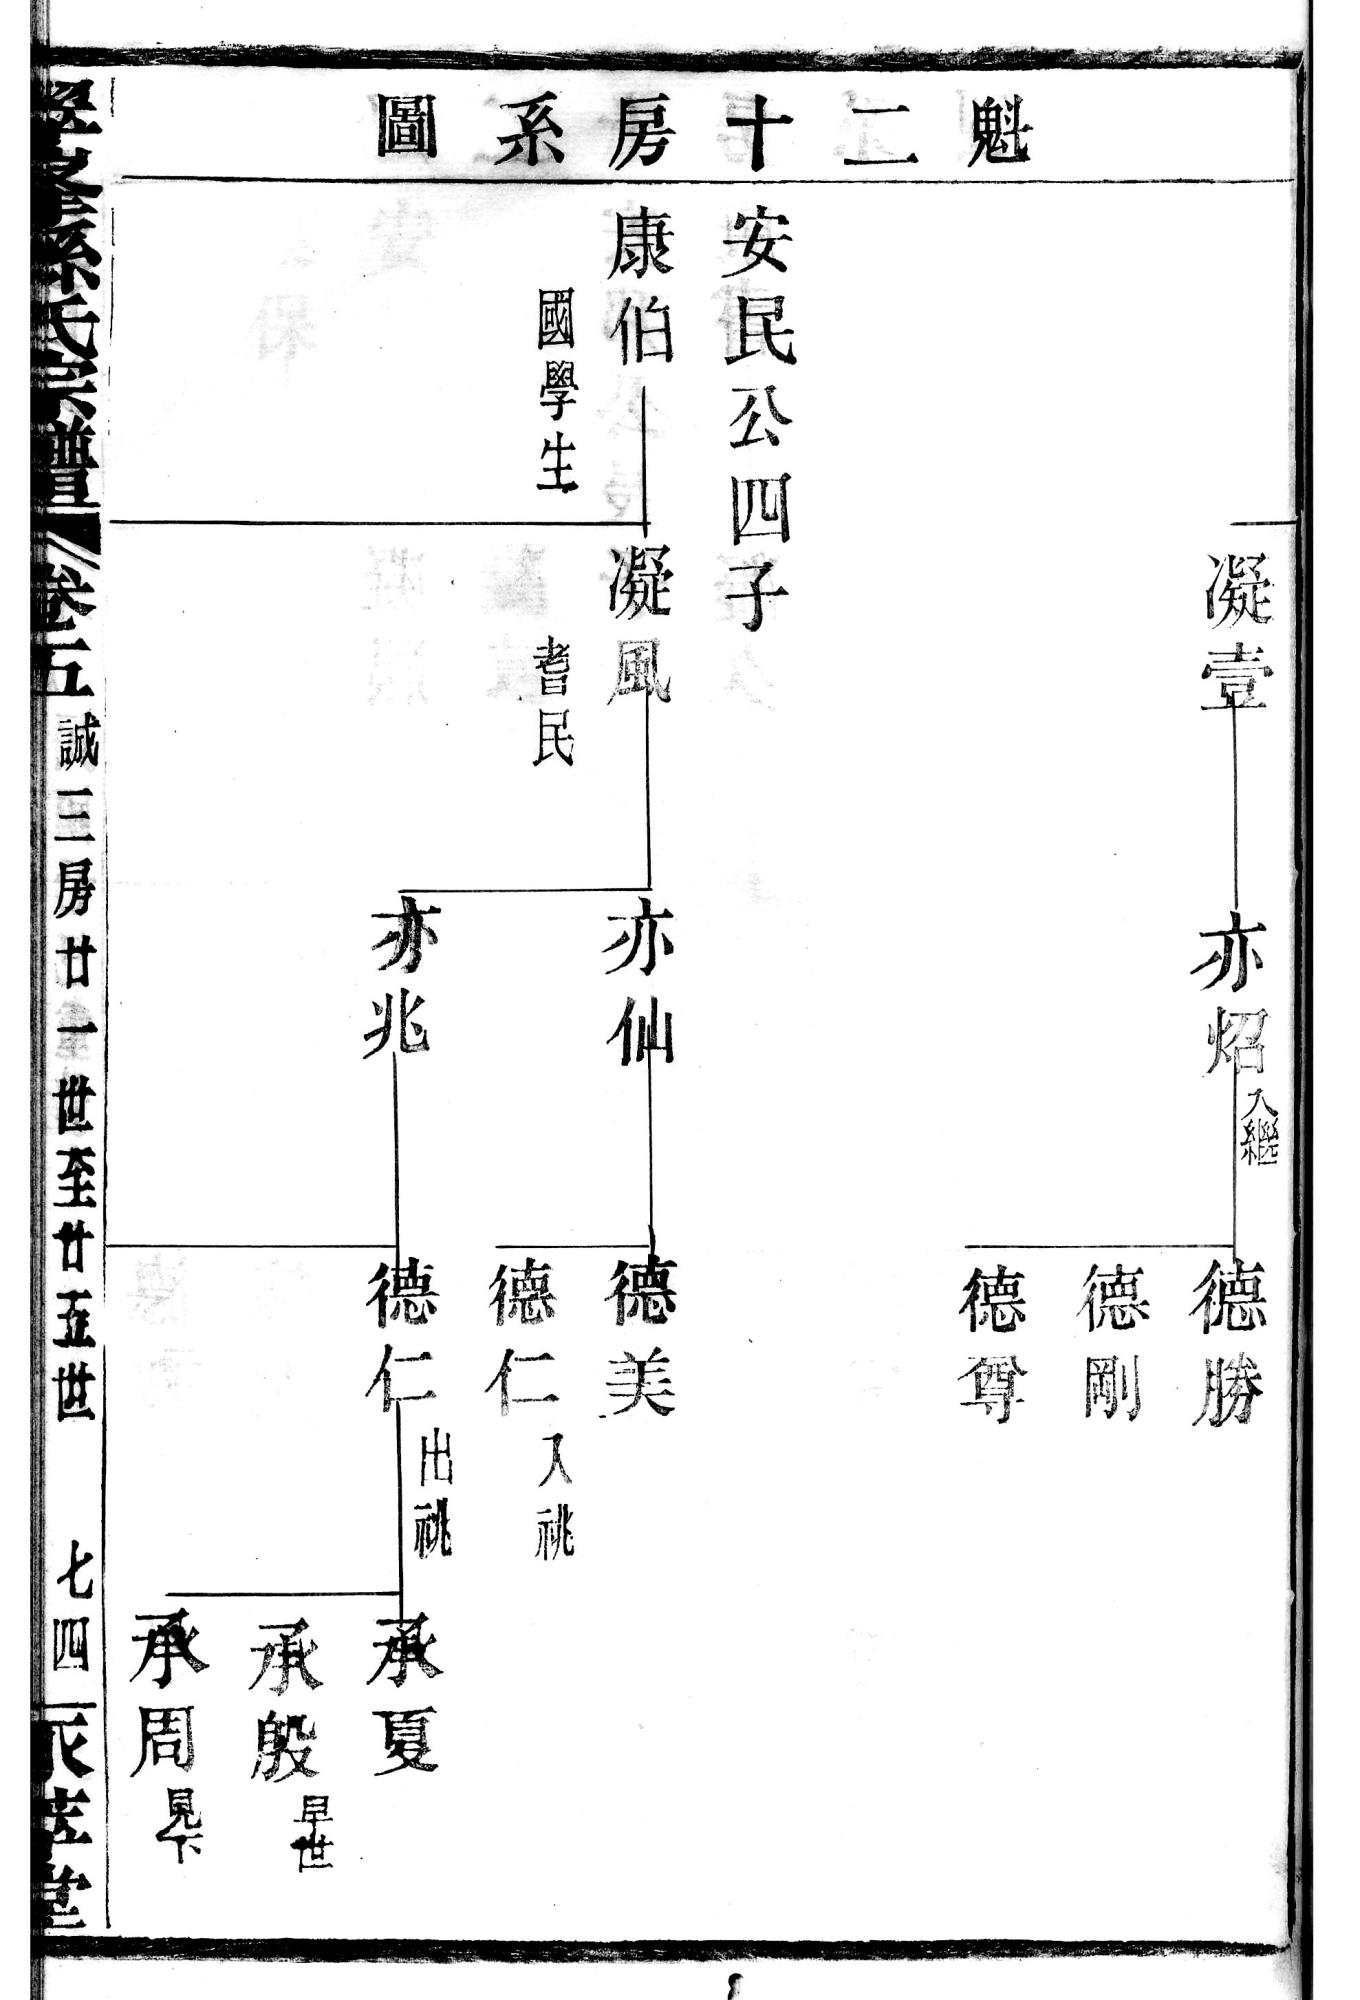 魁二十房系圖
凝壹
亦炤
入繼
德勝
德剛
德尊
安民公四子
康伯
國學生
凝風
耆民
亦仙
亦兆
德美
德仁
入祧
德仁
出祧
承夏
承殷
早世
承周
見下
孫氏宗譜
卷五
誠三房廿一世至廿五世
七四